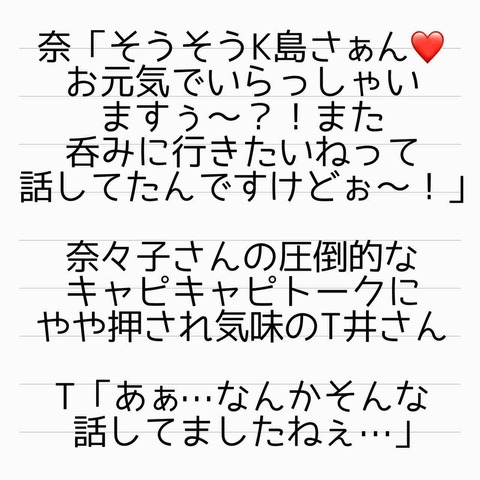 奈「そうそうK島さぁん❤️
お元気でいらっしゃい
ますぅ〜？！また
呑みに行きたいねって
話してたんですけどぉ〜！」
奈々子さんの圧倒的な
キャピキャピトークに
やや押され気味のT井さん
T「あぁ…なんかそんな
話してましたねぇ…」